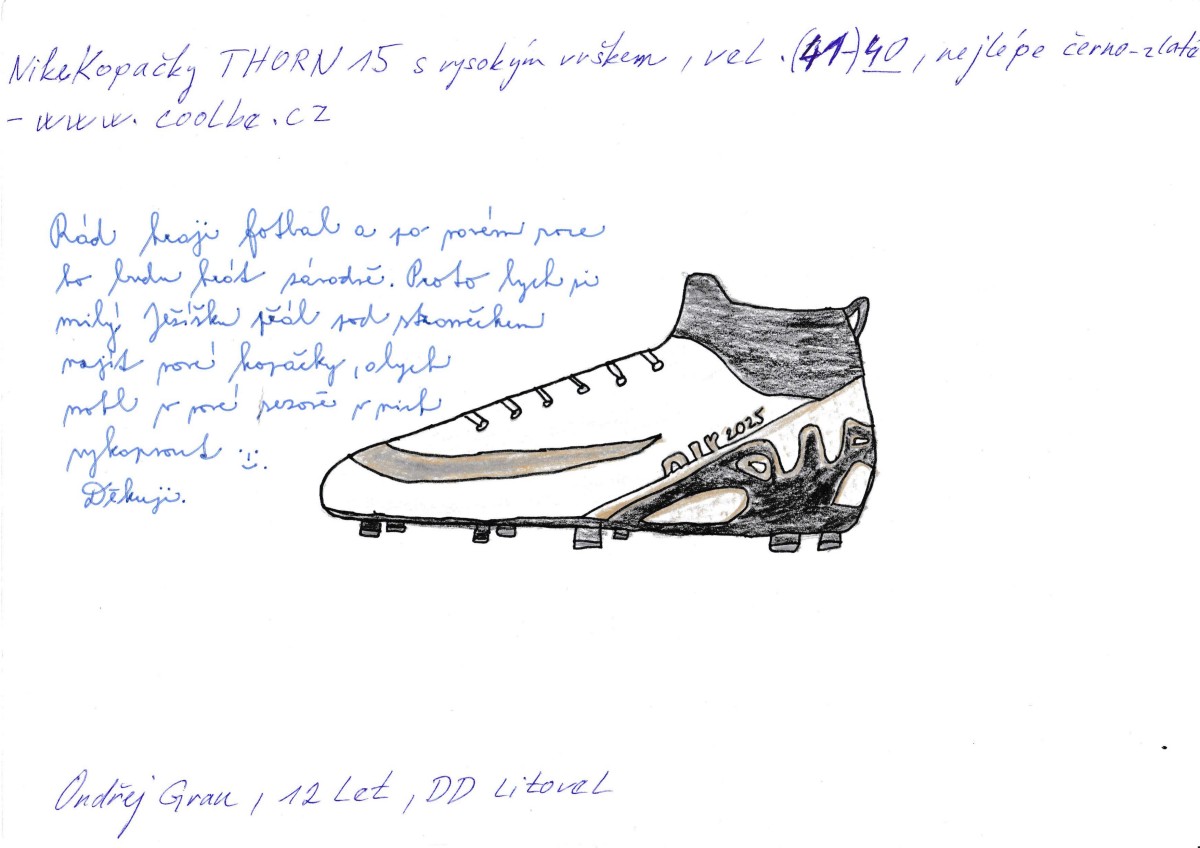 Nike Kopačky THORN 15 s vysokým vrškem, vel. (41-) 40, nejlépe černo-zlaté
- www.coolbe.cz
Rád hraji fotbal a po novém roce
ho budu hrát závodně. Proto bych si
milý Ježíšku přál pod stromečkem
najít nové kopačky, abych
mohl v nové sezoně v nich
vykopnout :).
Děkuji.
AIR 2025
Ondřej Grau, 12 let, DD Litovel